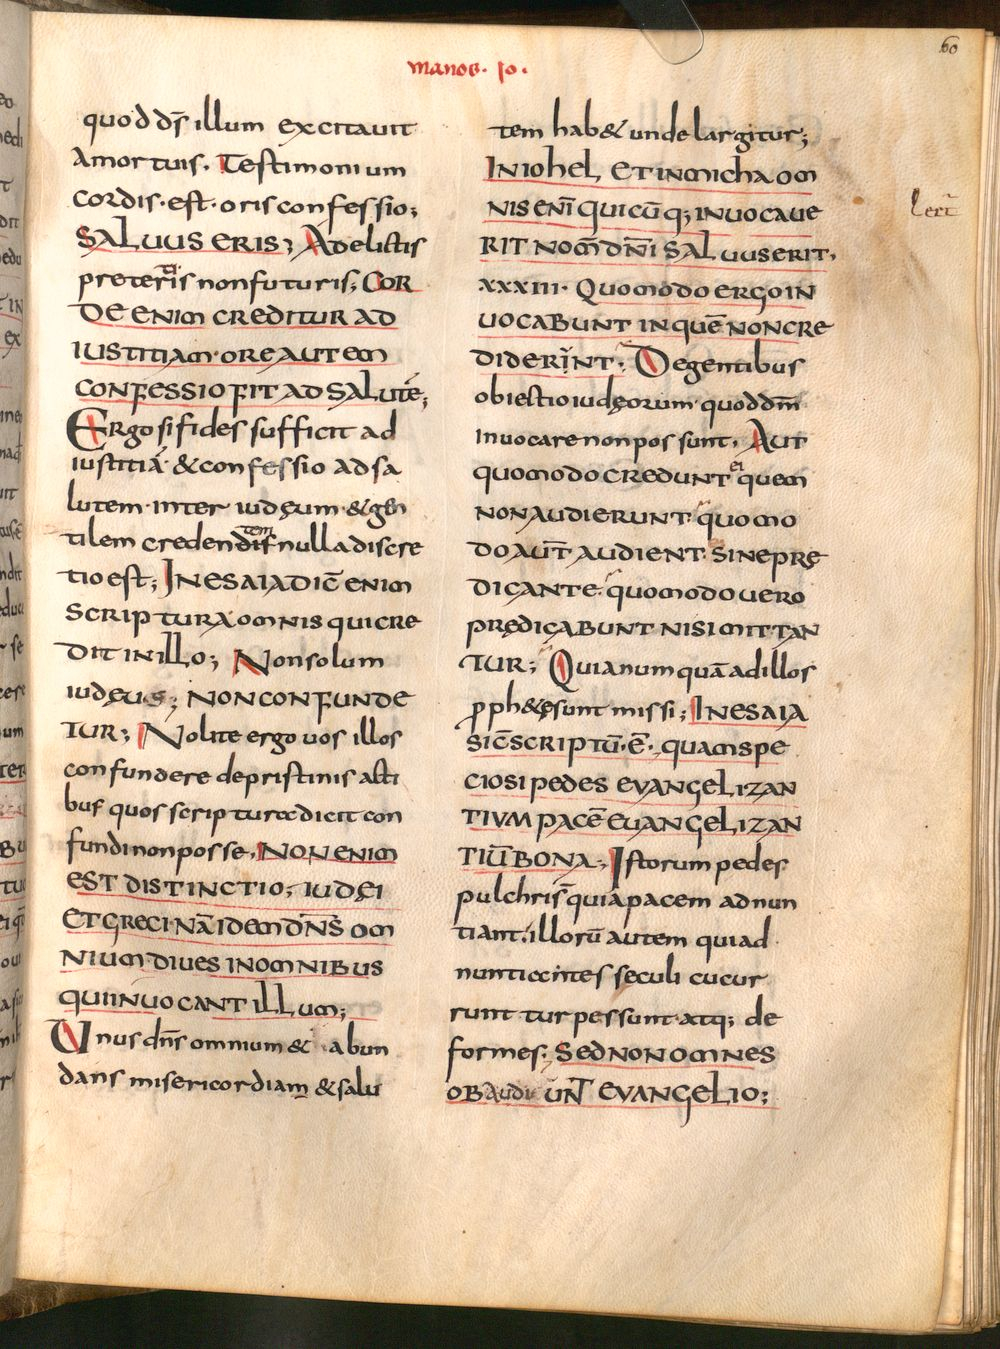 60
manos · io ·
quod ds̄ illum excitauit
Amortuis. Testimonium
cordis · est · oris confessio;
SALUUS ERIS; Adelictis
preteritis non futuris; COR
DE ENIM CREDITUR AD
IUSTITIAM · ORE AUTEM
CONFESSIO FIT AD SALUTĒ;
Ergo si fides sufficit ad
iustitiā · & confessio ad sa
lutem · inter iudęum · & gen
tilem credentem dis nulla discre
tio est; IN ESAIA DIC̄ ENIM
SCRIPTURA · OMNIS QUI CRE
DIT IN ILLO; Non solum
iudęus; NON CONFUNDE
TUR; Nolite ergo uos illos
confundere de pristinis acti
bus quos scriptura dicit con
fundi non posse. NON ENIM
EST DISTINCTIO; IUDEI
ET GRECI · NĀ IDEM DN̄S OM
NIUM DIUES IN OMNIBUS
QUI INUOCANT ILLUM;
Unus dn̄s omnium & abun
dans misericordiam & salu
tem hab& unde largitur;
IN IOHEL, ET IN MICHA OM
NIS ENĪ QUICŪQ; INUOCAUE
Lect̄
RIT NOM̄ DN̄I SALUUS ERIT.
XXXIII · QUOMODO ERGO IN
UOCABUNT IN QUĒ NON CRE
DIDERINT; De gentibus
obiectio iudęorum · quod dm̄
inuocare non possunt. AUT
QUOMODO CREDUNT ei QUEM
NON AUDIERUNT · QUOMO
DO AUT̄ AUDIENT · SINE PRĘ
DICANTE · QUOMODO UERO
PRĘDICABUNT NISI MITTAN
TUR; Quia numquā ad illos
pph&ę sunt missi; IN ESAIA
SIC̄ SCRIPTŪ · Ē · QUAM SPE
CIOSI PEDES EVANGELIZAN
TIVM PACĒ EUANGELIZAN
TIŪ BONA; Istorum pedes
pulchri s̄ quia pacem adnun
tiant. illorū autem qui ad
nuntiantes seculi cucur
runt turpes sunt · atq; de
formes; SED NON OMNES
OBAUDIUNT EVANGELIO;